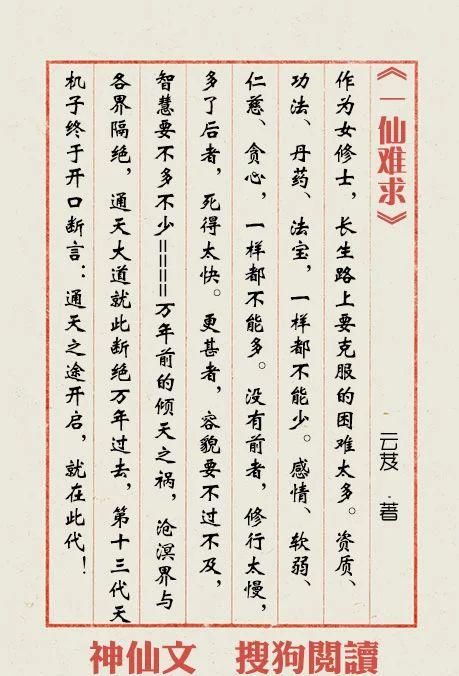 《一仙难求》
云芨·著
作为女修士，长生路上要克服的困难太多。资质、
功法、丹药、法宝，一样都不能少。感情、软弱、
仁慈、贪心，一样都不能多。没有前者，修行太慢，
多了后者，死得太快。更甚者，容貌要不过不及，
智慧要不多不少====万年前的倾天之祸，沧溟界与
各界隔绝，通天大道就此断绝万年过去，第十三代天
机子终于开口断言：通天之途开启，就在此代！
神仙文 搜狗閱讀